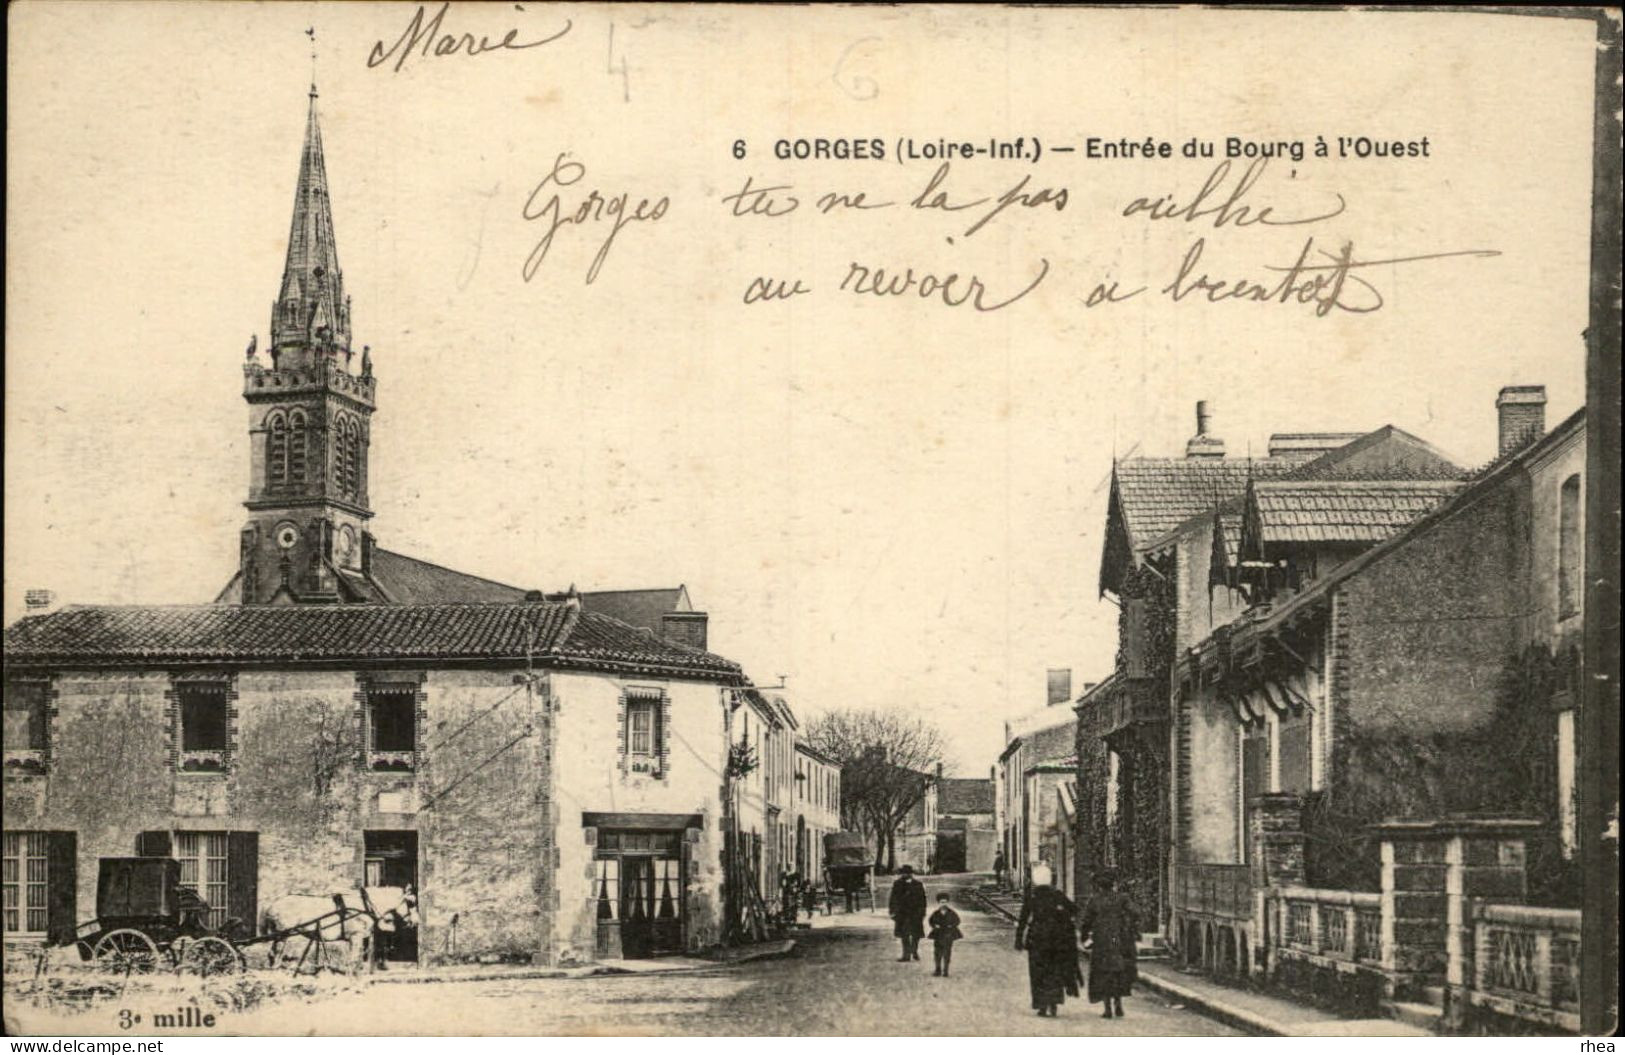 Marie
4 6
6 GORGES (Loire-Inf.) — Entrée du Bourg à l'Ouest
Gorges tu ne la pas oublié
au revoir a bientot
3e mille
www.delcampe.net
rhea